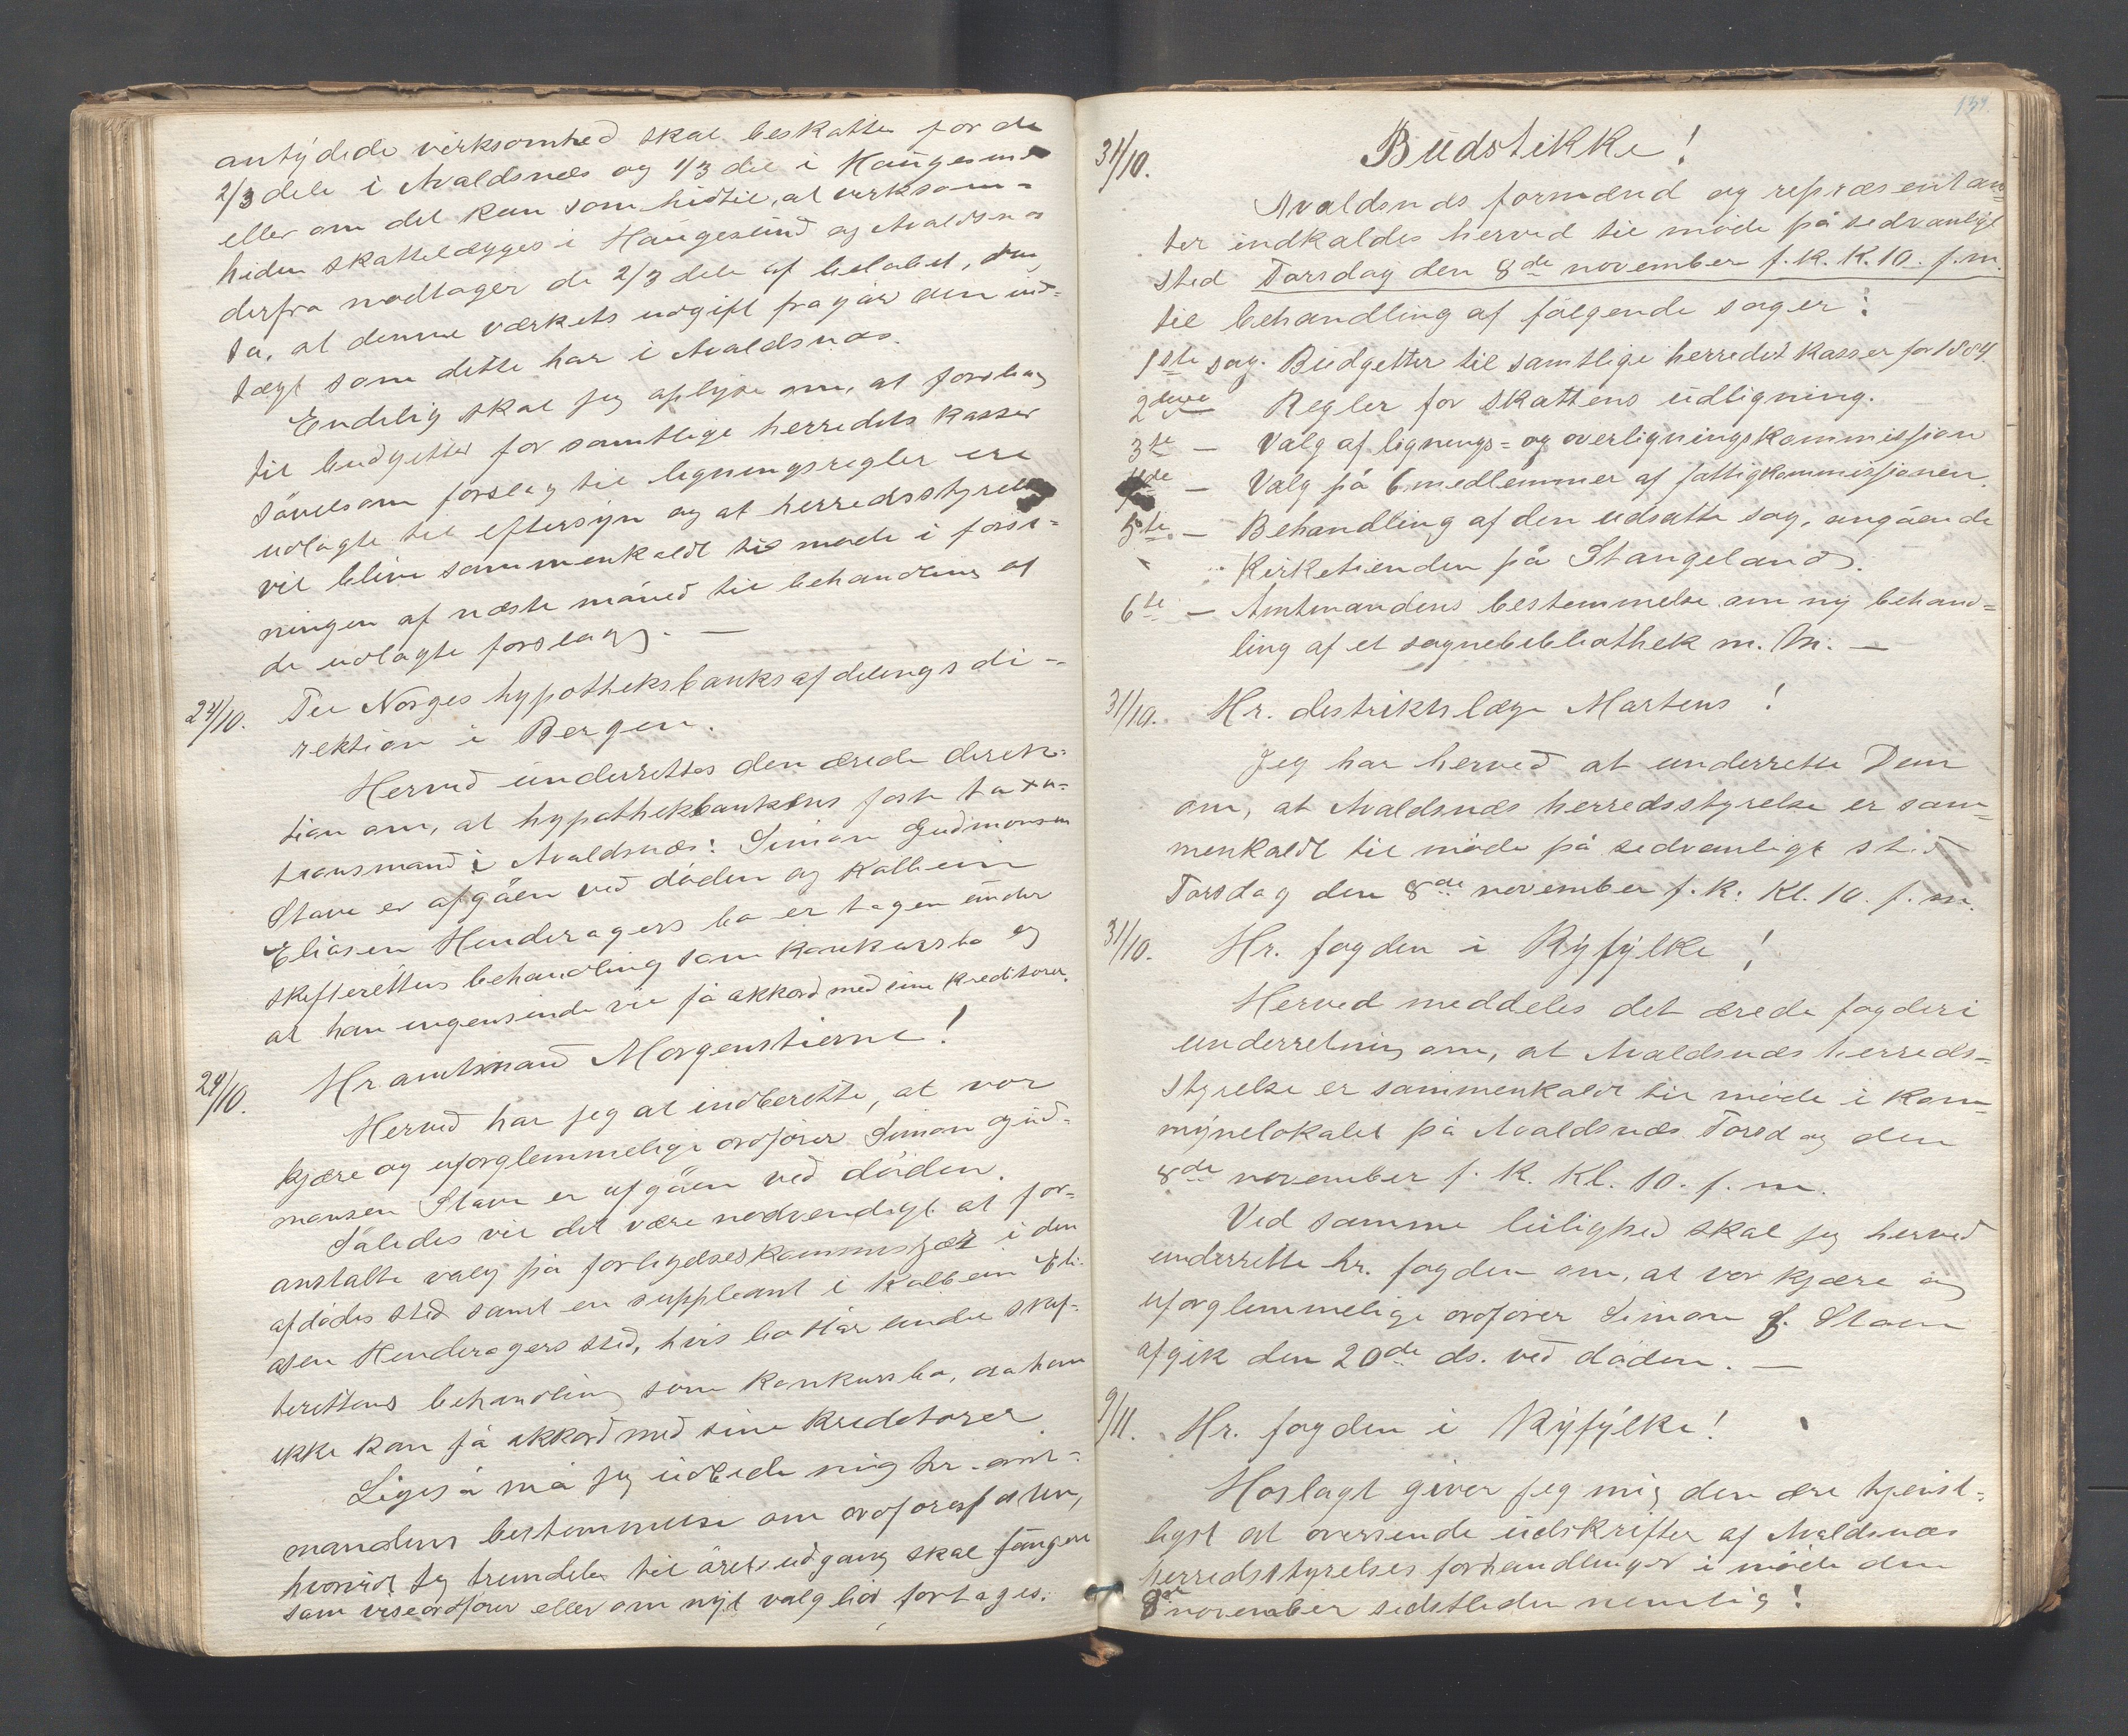 antydede virksomhed skal beskattes for de
2/3 dele i Avaldsnæs og 1/3 del i Haugesund
eller om det kan som hidtil, at virksom-
heden skattelægges i Haugesund og Avaldsnæs
derfra modtager de 2/3 dele af beløbet,
da, at denne værkets udgift fragår den ind-
tægt som dette har i Avaldsnæs.
Endelig skal jeg oplyse om, at forslag
til budgetter for samtlige herredets kasser
såvelsom forslag til ligningsregler ere
udlagte til eftersyn og at herredsstyrelsen
vil blive sammenkaldt til møde i forst-
ningen af næste måned til behandling af
de udlagte forslag. —
24/10. Til Norges hypotheksbanks afdelingsdi-
rektion i Bergen.
Herved underrettes den ærede direk-
tion om, at hypothekbankens faste taxa-
tionsmand i Avaldsnæs: Simon Gudmonsen
Stave er afgåen ved døden og Kolbein
Eliasen Henderagers bo er tagen under
skifterettens behandling som konkursbo og
at han ingensinde vil få akkord med sine kreditorer.
24/10. Hr amtmand Morgenstierne!
Herved har jeg at indberette, at vor
kjære og uforglemmelige ordfører Simon Gud-
monsen Stave er afgåen ved døden.
Således vil det være nødvendigt at for-
anstalte valg på forligelseskommissær i den
afdødes sted samt en suppleant i Kolbein Eli-
asen Henderagers sted, hvis bo står under skif-
terettens behandling som konkursbo, da han
ikke kan få akkord med sine kreditorer
Ligeså må jeg udbede mig hr. amt-
mandens bestemmelse om ordførerposten,
hvorvidt jeg fremdeles til årets udgang skal fungere
som viseordfører eller om nyt valg bør foretages.
134.
31/10. Budstikke!
Avaldsnæs formænd og repræsentan-
ter indkaldes herved til møde på sedvanligt
sted Torsdag den 8de november f. k. K. 10. f.m.
til behandling af følgende sager:
1ste sag. Budgetter til samtlige herredets kasser for 1884.
2den Regler for skattens udligning.
3te — Valg af lignings- og overligningskommission
4de — Valg på 6 medlemmer af fattigkommissionen.
5te. — Behandling af den udsatte sag, angående
Kirketienden på Stangeland.
6te — Amtmandens bestemmelse om ny behand-
ling af et sognebibliothek m. m. —
31/10. Hr. distriktslæge Martens!
Jeg har herved at underrette Dem
om, at Avaldsnæs herredsstyrelse er sam-
menkaldt til møde på sedvanligt sted
Torsdag den 8de november f. k. Kl. 10. f. m.
31/10. Hr. fogden i Ryfylke!
Herved meddeles det ærede fogderi
underretning om, at Avaldsnæs herreds-
styrelse er sammenkaldt til møde i kom-
mynelokalet på Avaldsnæs Torsdag den
8de november f. k. Kl. 10. f. m.
Ved samme leilighed skal jeg herved
underrette hr. fogden om, at vor kjære og
uforglemmelige ordfører Simon G. Stave
afgik den 20de ds. ved døden. —
9/11. Hr. fogden i Ryfylke!
Hoslagt giver jeg mig den ære tjenst-
ligst at oversende udskrifter af Avaldsnæs
herredsstyrelses forhandlinger i møde den
8de november sidstleden nemlig!